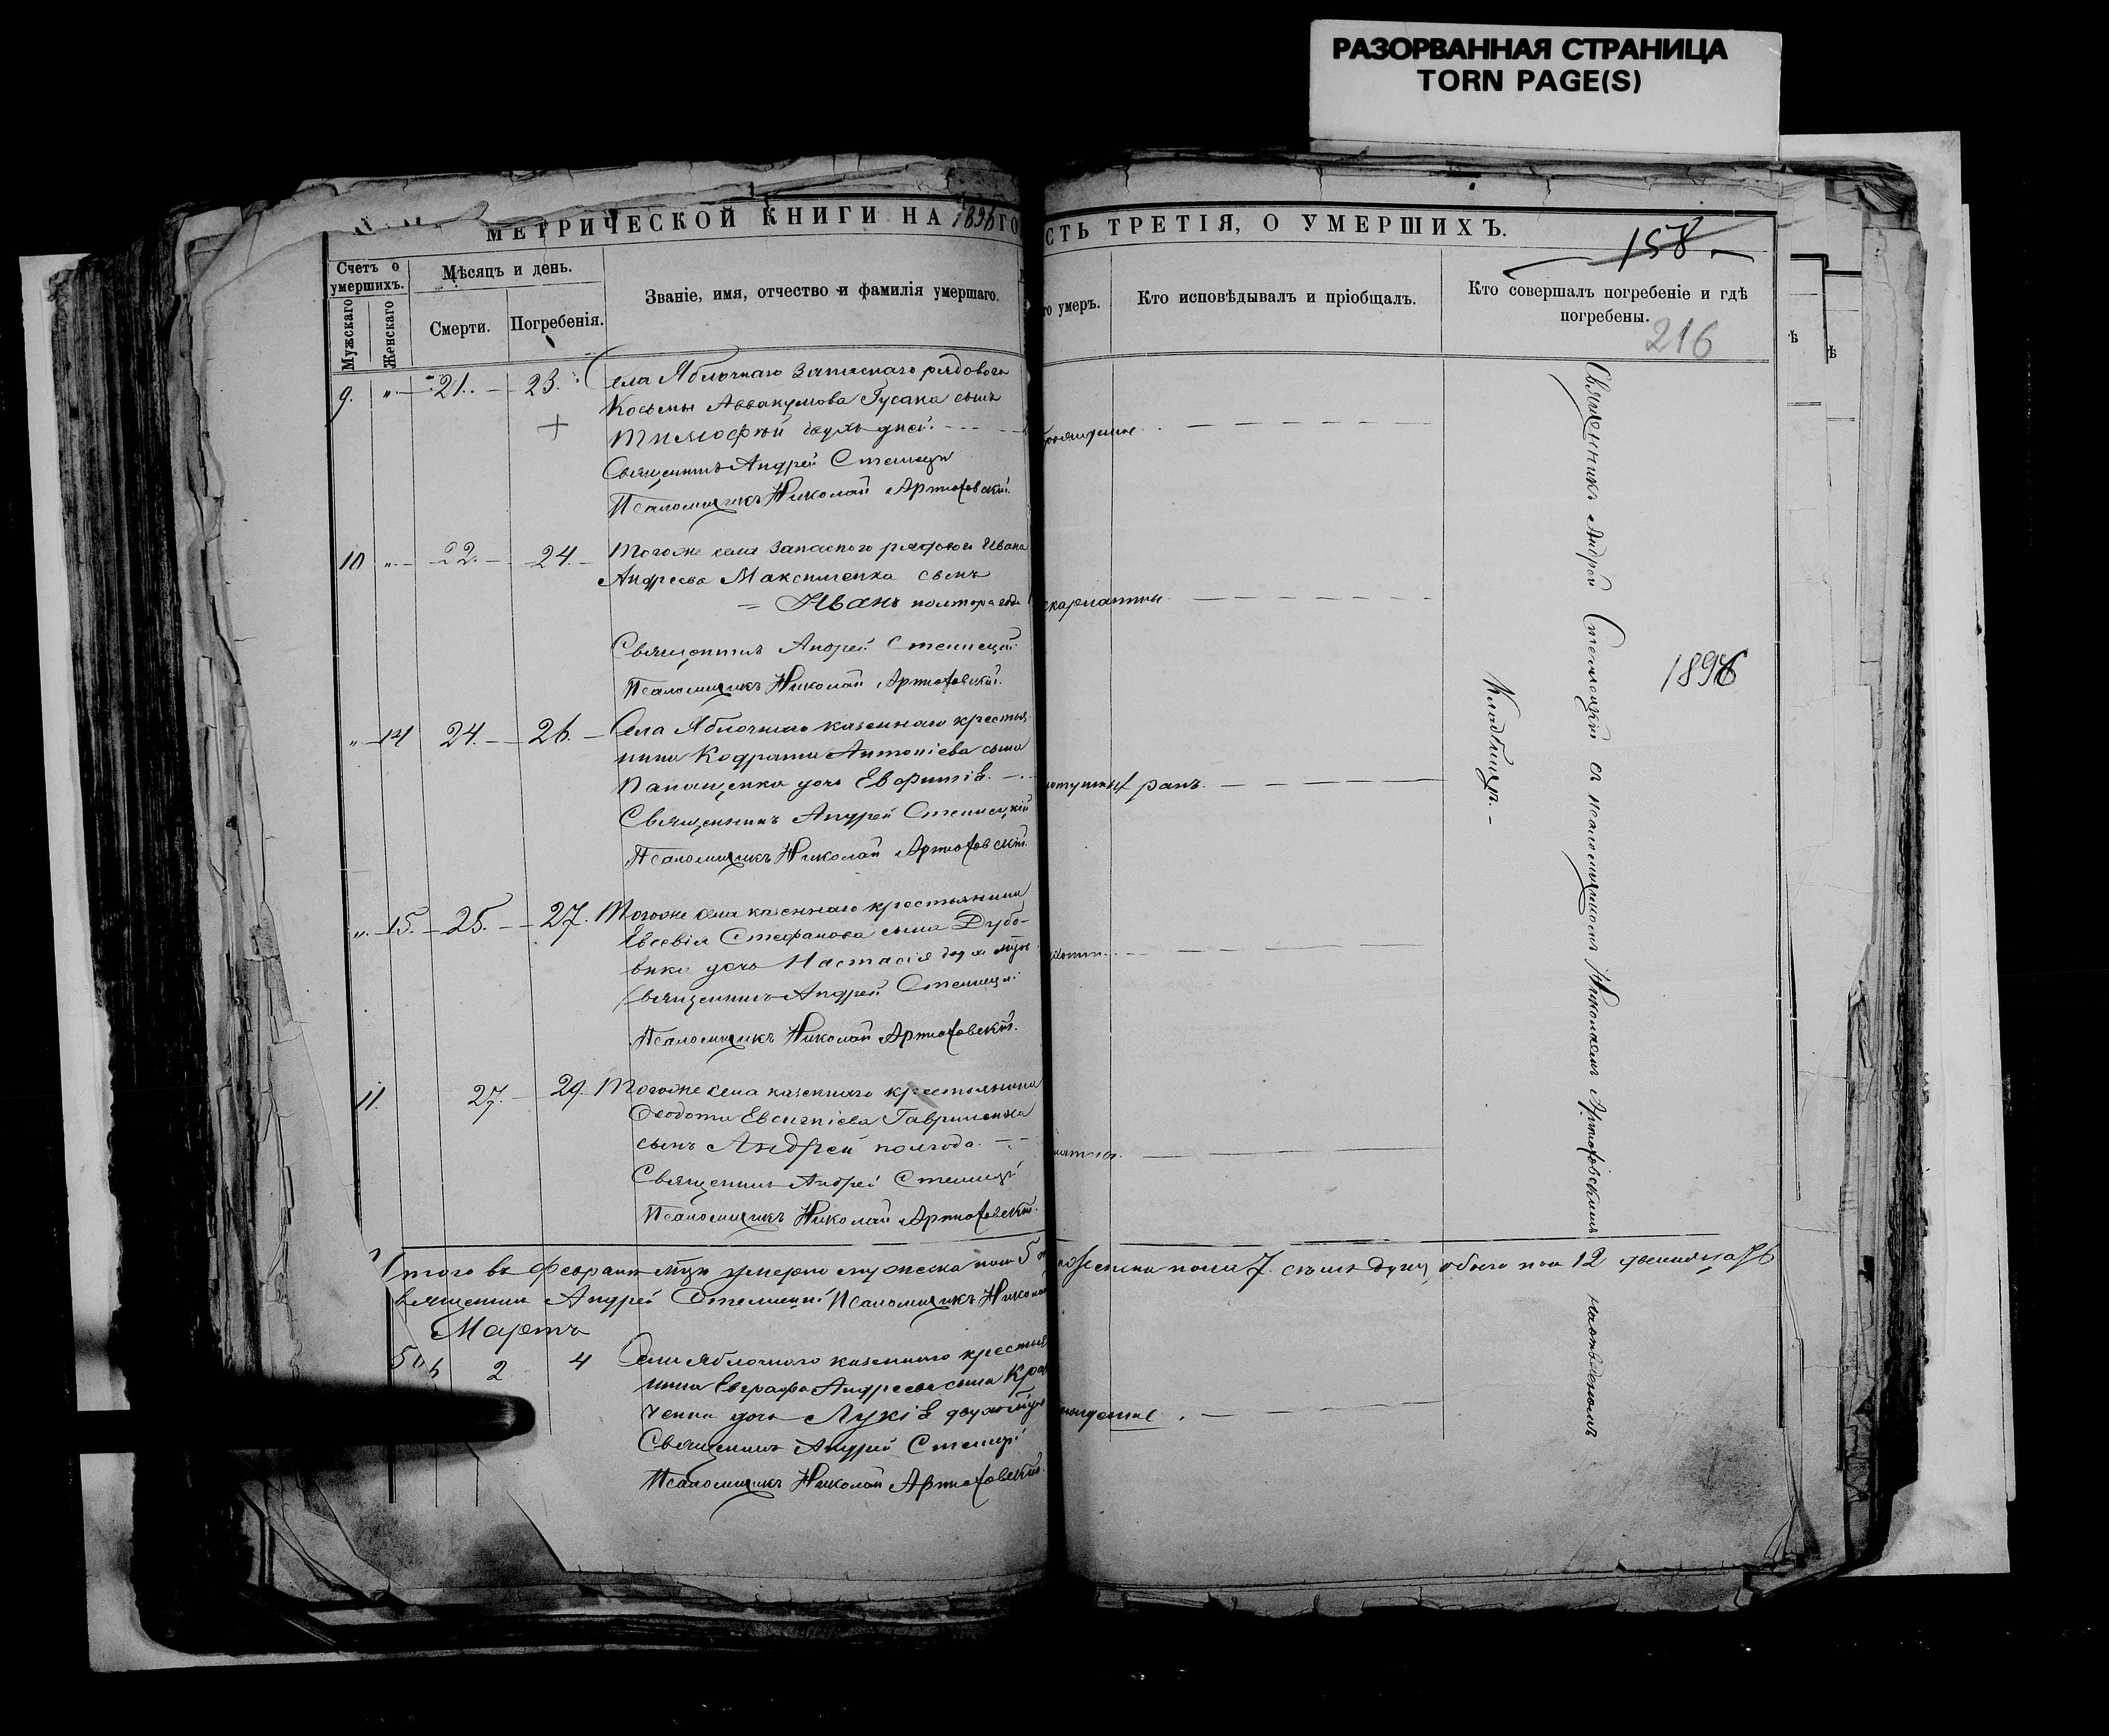 РАЗОРВАННАЯ СТРАНИЦА
TORN PAGE(S)
МЕТРИЧЕСКОЙ КНИГИ НА 1896 ГО
СТЬ ТРЕТІЯ, О УМЕРШИХЪ.
158
Счетъ о умершихъ.
Мужскаго
Женскаго
Мѣсяцъ и день.
Смерти.
Погребенія.
Званіе, имя, отчество и фамилія умершаго.
го умеръ.
Кто исповѣдывалъ и пріобщалъ.
Кто совершалъ погребеніе и гдѣ
погребены.
216
9. " 21. 23. Села Яблочнаго запаснаго рядового
Косьмы Аввакумова Гусака сынъ
Тимофей двухъ дней.
Священникъ Андрей Стеллецкій
Псаломщикъ Николай Артюховскій.
10 " 22. 24. Тогоже села запасного рядового Ивана
Андреева Максименка сынъ
Иванъ полтора года
скарлатины
Священникъ Андрей Стеллецкій
Псаломщикъ Николай Артюховскій.
" 14 24. 26. Села Яблочнаго казеннаго крестья
нина Кодрата Антоніева сына
дочь Евфимія.
ранъ.
Священникъ Андрей Стеллецкій
Псаломщикъ Николай Артюховскій.
" 15. 25. 27. Тогоже села казеннаго крестьянина
Евсевія Стефанова сына Дубо-
вика дочь Настасія
Священникъ Андрей Стеллецкій
Псаломщикъ Николай Артюховскій.
11. 27. 29. Тогоже села казеннаго крестьянина
Ѳеодота Евсигніева Гавриленка
сынъ Андрей полгода.
Священникъ Андрей Стеллецкій
Псаломщикъ Николай Артюховскій.
Итого въ Февралѣ м҃цѣ умерло мужеска пола 5 женска пола 7. всѣхъ душъ обоего пола 12
Священникъ Андрей Стеллецкій Псаломщикъ Никола
Мартъ
2 4 Села Яблочнаго казеннаго крестья
нина Евграфа Андреева сына Кра
ченка дочь Лукія
Священникъ Андрей Стеллецкій
Псаломщикъ Николай Артюховскій.
Кладбищѣ.
Священникъ Андрей Стеллецкій съ псаломщикомъ Николаемъ Артюховскимъ
1896